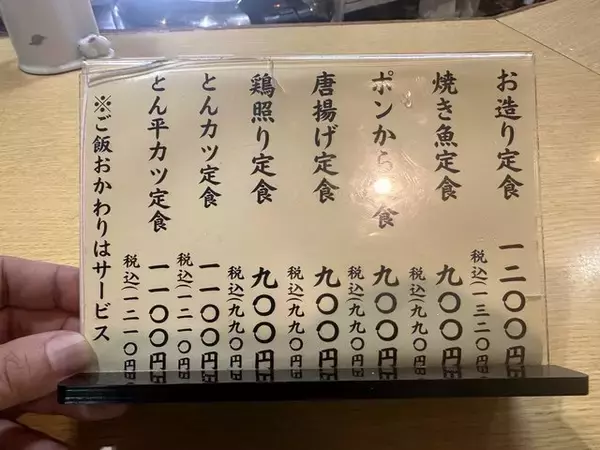 お造り定食 一二〇〇円
税込(一三二〇円
焼き魚定食 九〇〇円
税込(九九〇円
ポンから 食 九〇〇円
税込(九九〇円
唐揚げ定食 九〇〇円
税込(九九〇円
鶏照り定食 九〇〇円
税込(九九〇円
とんカツ定食 一一〇〇円
税込(一二一〇円
とん平カツ定食 一一〇〇円
税込(一二一〇円
※ご飯おかわりはサービス